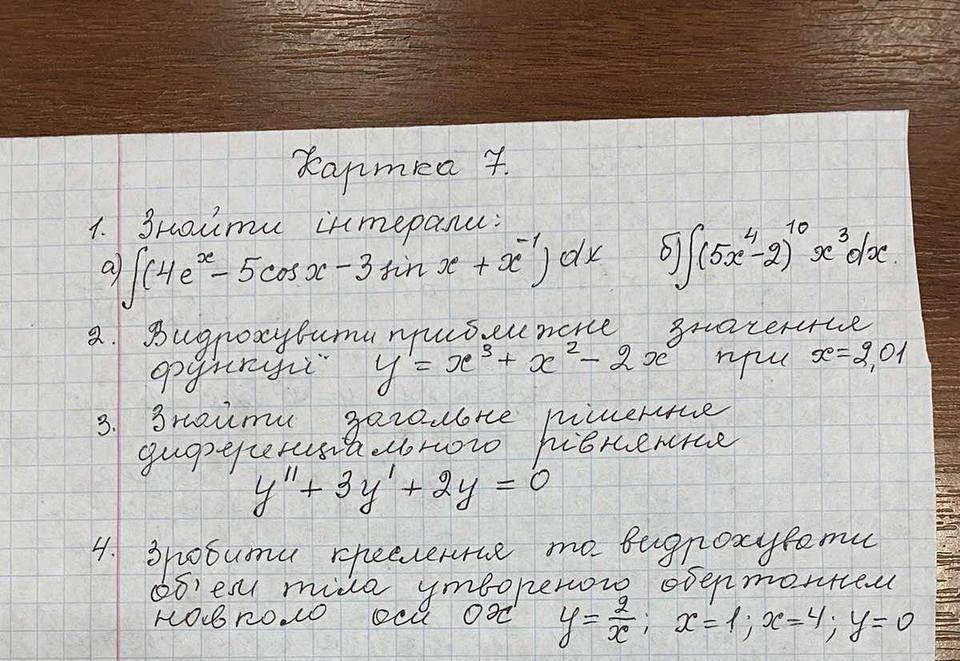 Картка 7.
1. Знайти інтерали:
а) ∫(4eˣ - 5cos x - 3 sin x + x⁻¹) dx б) ∫(5x⁴-2)¹⁰ x³dx.
2. Видрохувити приближне значення
функції y = x³ + x² - 2x при x=2,01
3. Знайти загальне рішення
диференціального рівняння
y'' + 3y' + 2y = 0
4. Зробити креслення та видрохувати
об'єм тіла утвореного обертаннем
навколо оси ОХ y = 2/x; x=1; x=4; y=0